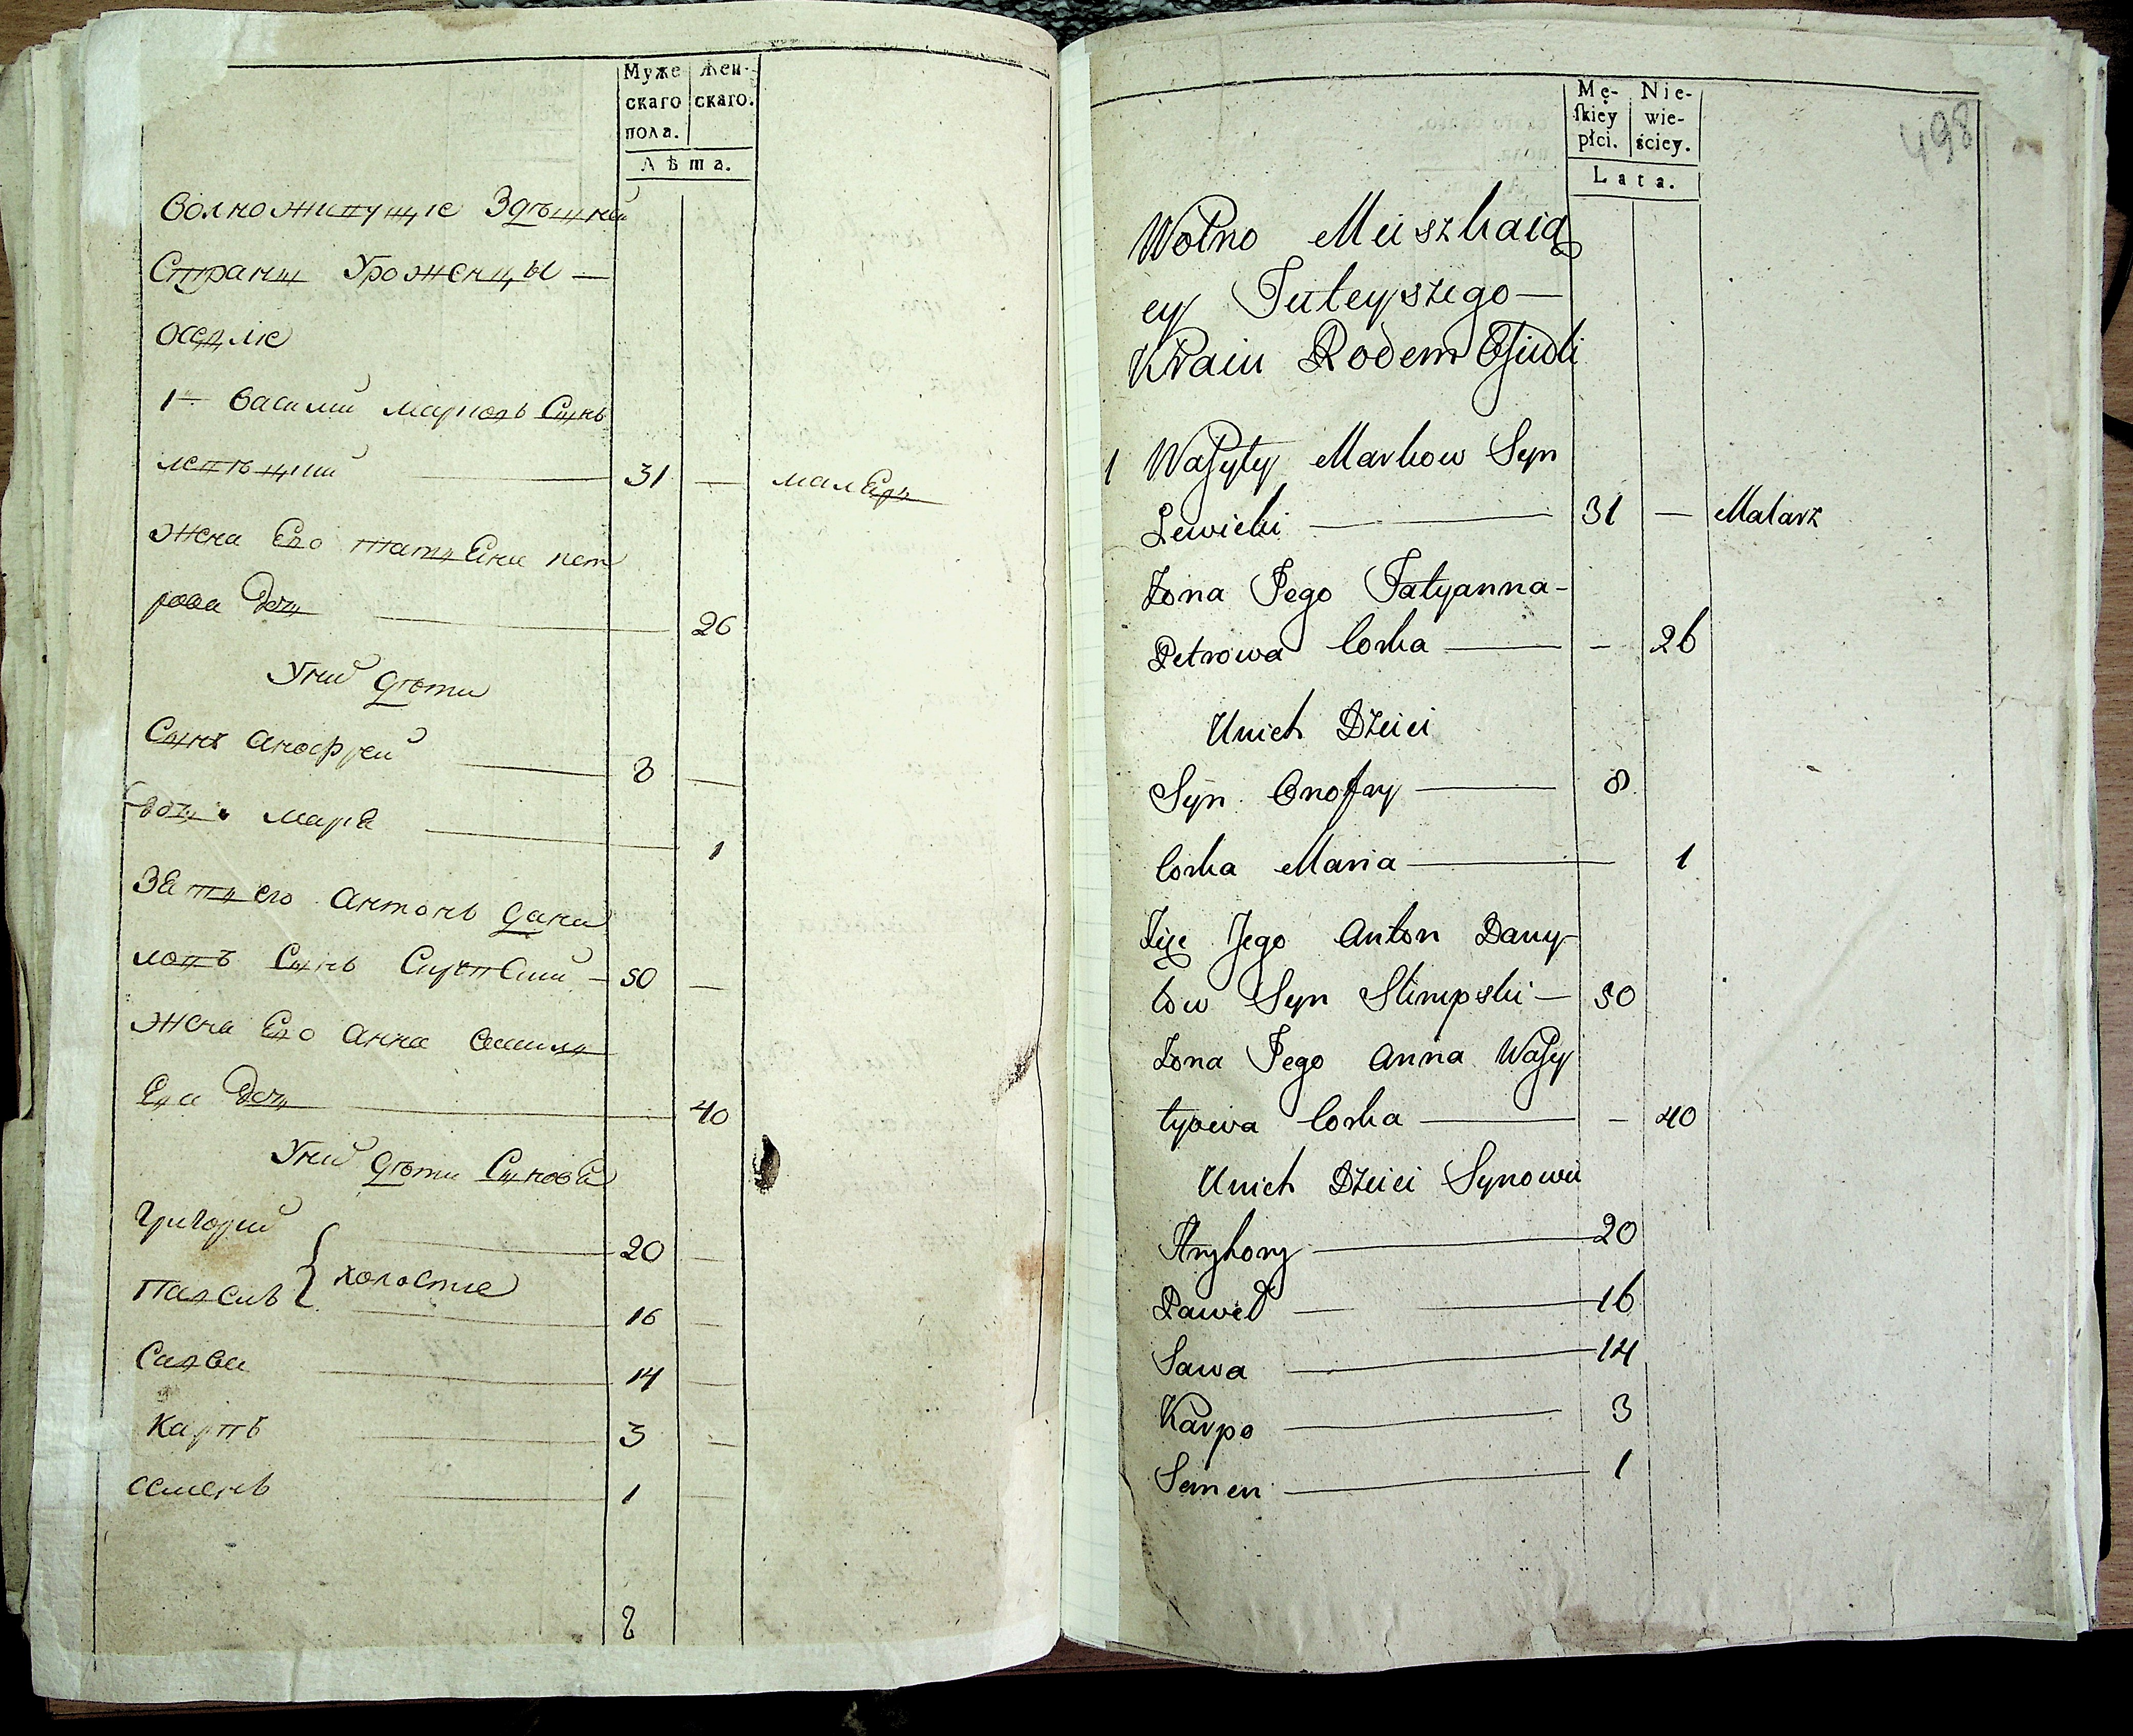 Муже
скаго
пола.
Жен-
скаго.
Лѣта.
Волножипущіе Здѣшней
Страны Уроженцы —
оседліе
1 Василий Марковъ Сынъ
левъцкий — 31 — маляръ
жена Его татьяна пет
рова дочь — 26
У них дѣти
Сынъ анофрей — 8 —
дочь марья — 1
Зять его антонъ дани
ловъ Сынъ — 50 —
жена Его анна василь
ева дочь — 40
У них дѣти Сыновья
Григорий — 20 —
холостіе
Павелъ — 16 —
Савва — 14 —
Карпъ — 3 —
семенъ — 1 —
8
Mę-
ſkiey
płci.
Nie-
wie-
ściey.
Lata.
498
Wolno Meiszkaią
cy Tuteyszego —
Kraiu Rodem Osiedli
1 Wasyly Markow Syn
Lewicki — 31 — Malarz
Żona Jego Tatyanna -
Petrowa Corka — - 26
Unich Dzieci
Syn Onofry — 8
Corka Maria — 1
Zięć Jego Anton Dany
low Syn — 50
Żona Jego Anna Wasy
lyowa Corka — - 40
Unich Dzieci Synowie
Hryhory — 20
Paweł — 16
Sawa — 14
Karpo — 3
Semen — 1